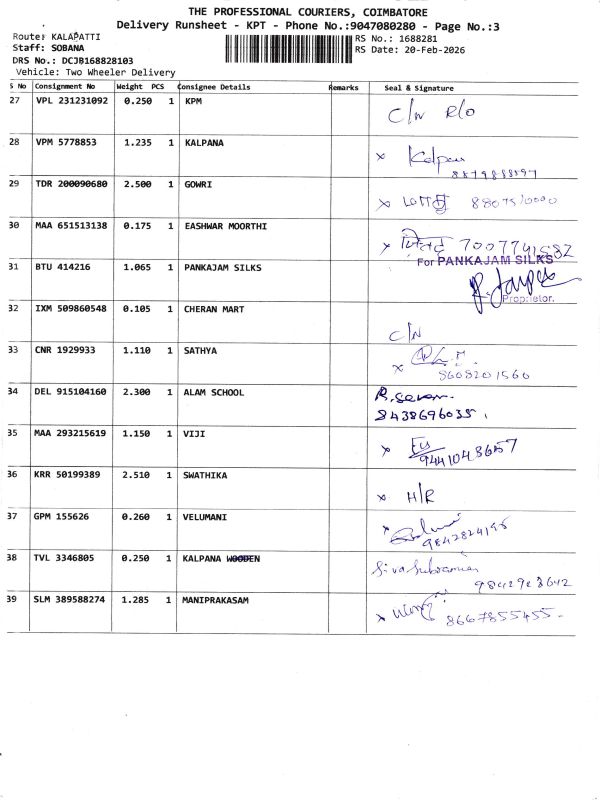 THE PROFESSIONAL COURIERS, COIMBATORE
Delivery Runsheet - KPT - Phone No.:9047080280 - Page No.:3
Route: KALAPATTI
RS No.: 1688281
Staff: SOBANA
RS Date: 20-Feb-2026
DRS No.: DCJB168828103
Vehicle: Two Wheeler Delivery
S No Consignment No Weight PCS Consignee Details Remarks Seal & Signature
27 VPL 231231092 0.250 1 KPM C/N R/O
28 VPM 5778853 1.235 1 KALPANA x Kalpana
29 TDR 200090680 2.500 1 GOWRI x
30 MAA 651513138 0.175 1 EASHWAR MOORTHI x
For PANKAJAM SILKS
31 BTU 414216 1.065 1 PANKAJAM SILKS
Proprietor.
32 IXM 509860548 0.105 1 CHERAN MART C/N
33 CNR 1929933 1.110 1 SATHYA x
8608201560
34 DEL 915104160 2.300 1 ALAM SCHOOL
8438696035.
35 MAA 293215619 1.150 1 VIJI x
36 KRR 50199389 2.510 1 SWATHIKA x H/R
37 GPM 155626 0.260 1 VELUMANI x
9842824196
38 TVL 3346805 0.250 1 KALPANA WOODEN Siva Subramanian
39 SLM 389588274 1.285 1 MANIPRAKASAM x 8667855455.